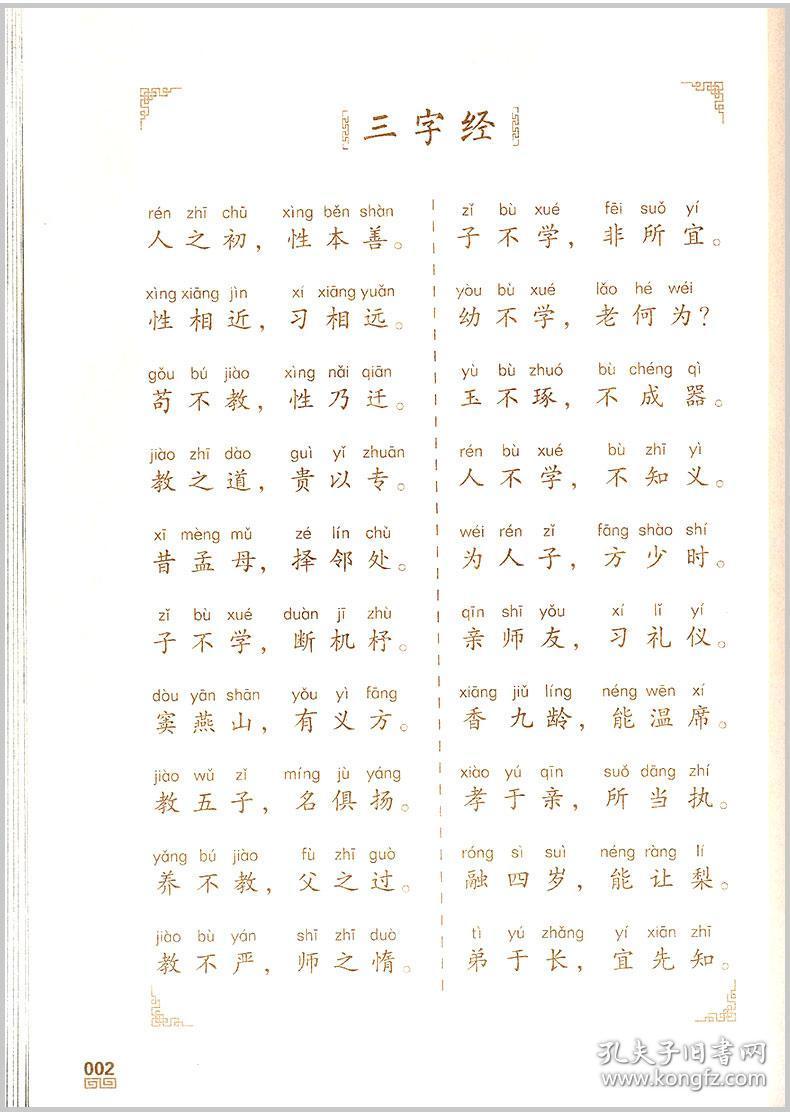 三字经
rén zhī chū xìng běn shàn
人之初，性本善。
xìng xiāng jìn xí xiāng yuǎn
性相近，习相远。
gǒu bú jiào xìng nǎi qiān
苟不教，性乃迁。
jiào zhī dào guì yǐ zhuān
教之道，贵以专。
xī mèng mǔ zé lín chù
昔孟母，择邻处。
zǐ bù xué duàn jī zhù
子不学，断机杼。
dòu yān shān yǒu yì fāng
窦燕山，有义方。
jiào wǔ zǐ míng jù yáng
教五子，名俱扬。
yǎng bú jiào fù zhī guò
养不教，父之过。
jiào bù yán shī zhī duò
教不严，师之惰。
zǐ bù xué fēi suǒ yí
子不学，非所宜。
yòu bù xué lǎo hé wéi
幼不学，老何为？
yù bù zhuó bù chéng qì
玉不琢，不成器。
rén bù xué bù zhī yì
人不学，不知义。
wéi rén zǐ fāng shào shí
为人子，方少时。
qīn shī yǒu xí lǐ yí
亲师友，习礼仪。
xiāng jiǔ líng néng wēn xí
香九龄，能温席。
xiào yú qīn suǒ dāng zhí
孝于亲，所当执。
róng sì suì néng ràng lí
融四岁，能让梨。
tì yú zhǎng yí xiān zhī
弟于长，宜先知。
002
孔夫子旧书网
www.kongfz.com